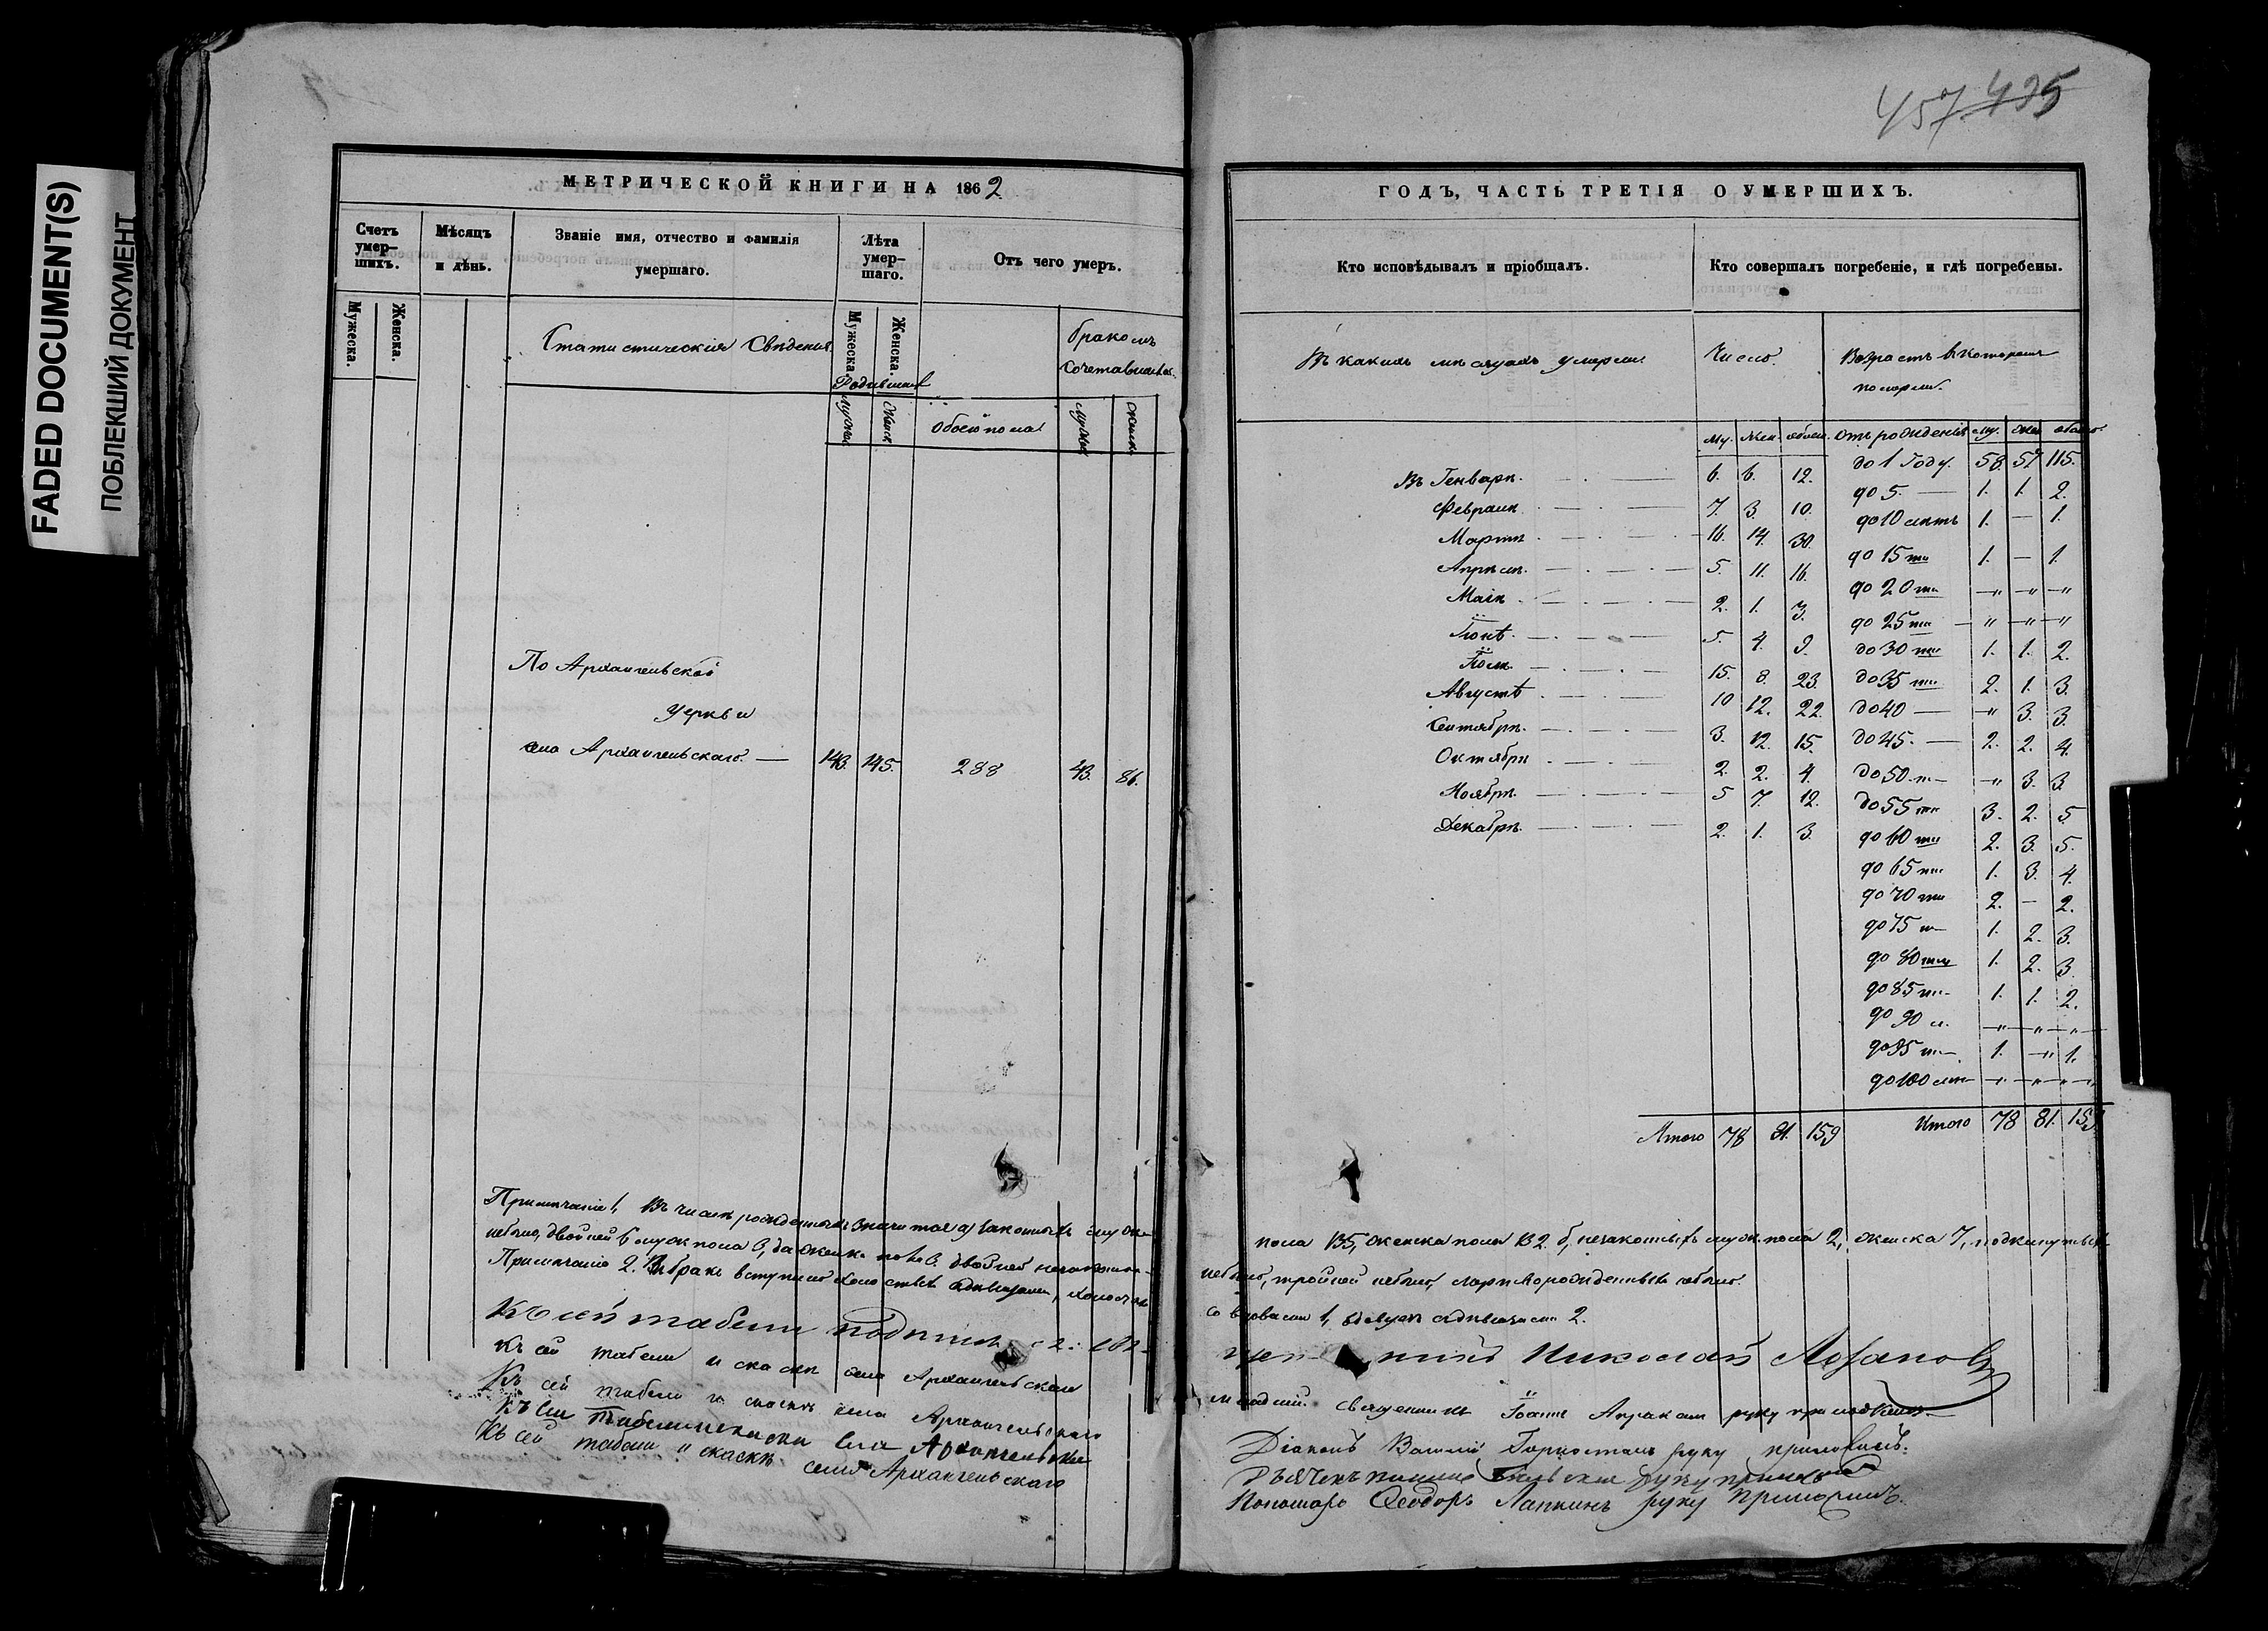 457 435
FADED DOCUMENT(S)
ПОБЛЕКШИЙ ДОКУМЕНТ
МЕТРИЧЕСКОЙ КНИГИ НА 1862
Счетъ умер-шихъ.
Мѣсяцъ и дѣнь.
Званіе имя, отчество и фамилія умершаго.
Лѣта умер-шаго.
Отъ чего умеръ.
Мужеска.
Женска.
Мужеска.
Женска.
Статистическія Свѣденія
Родившихся
бракомъ
сочетавшихся
обоего пола
По Архангельской
церкви
села Архангельскаго. — 143. 145. 288 43. 86.
Примѣчаніе 1, Въ числѣ рожденныхъ значится а, законныхъ муж
небыло, двойней 6 муж пола 3, да женска
Примѣчаніе 2. Въ бракъ вступило
Къ сей табели подпис
Къ сей табели и сказкѣ села Архангельскаго
Къ сей табели и сказкѣ села Архангельскаго
Къ сей табели и сказкѣ села Архангельскаго
Къ сей табели и сказкѣ села Архангельскаго
ГОДЪ, ЧАСТЬ ТРЕТІЯ О УМЕРШИХЪ.
Кто исповѣдывалъ и пріобщалъ.
Кто совершалъ погребеніе, и гдѣ погребены.
Въ какихъ мѣсяцахъ умерли.
Число.
Возрастъ въ которомъ
померли.
му. жен. обоего. отъ рожденія му. жен обоего.
Въ Генварѣ. 6. 6. 12. до 1 году. 58. 57 115.
Февралѣ 7. 3. 10. до 5. — 1. 1. 2.
Мартѣ 16. 14. 30. до 10 лѣтъ 1. — 1.
Апрѣлѣ. 5. 11. 16. до 15 ти 1. — 1.
Маіѣ 2. 1. 3. до 20 ти —"—"—"
Іюнѣ. 5. 4. 9. до 25 ти —"—"—"
Іюлѣ. 15. 8. 23. до 30 ти 1. 1. 2.
Августѣ 10 12. 22. до 35 ти 2. 1. 3.
Сентябрѣ. 3. 12. 15. до 40 — —" 3. 3.
Октябрѣ 2. 2. 4. до 45. — 2. 2. 4.
Ноябрѣ. 5 7. 12. до 50 — —" 3. 3.
Декабрѣ. 2. 1. 3. до 55 ти 3. 2. 5.
до 60 ти 2. 3. 5.
до 65 ти 1. 3. 4.
до 70 ти 2. — 2.
до 75 1. 2. 3.
до 80 ти 1. 2. 3.
до 85 1. 1. 2.
до 90 л. —"—"—"—
до 95 1. —" 1.
до 100 лѣтъ —"—"—"
Итого 78 81. 159 Итого 78 81. 159
пола 135, женска пола 132. б, незаконныхъ муж. пола 2, женска 7, подкинутыхъ
небыло, тройней небыло, мертворожденныхъ небыло.
со вдовами 1, вдовцы съ дѣвицами 2.
Николай Лозановъ
младшій священникъ Іоаннъ руку приложилъ
Діаконъ Василій руку приложилъ:
руку приложилъ
Пономарь Ѳеодоръ Лапкинъ руку приложилъ.